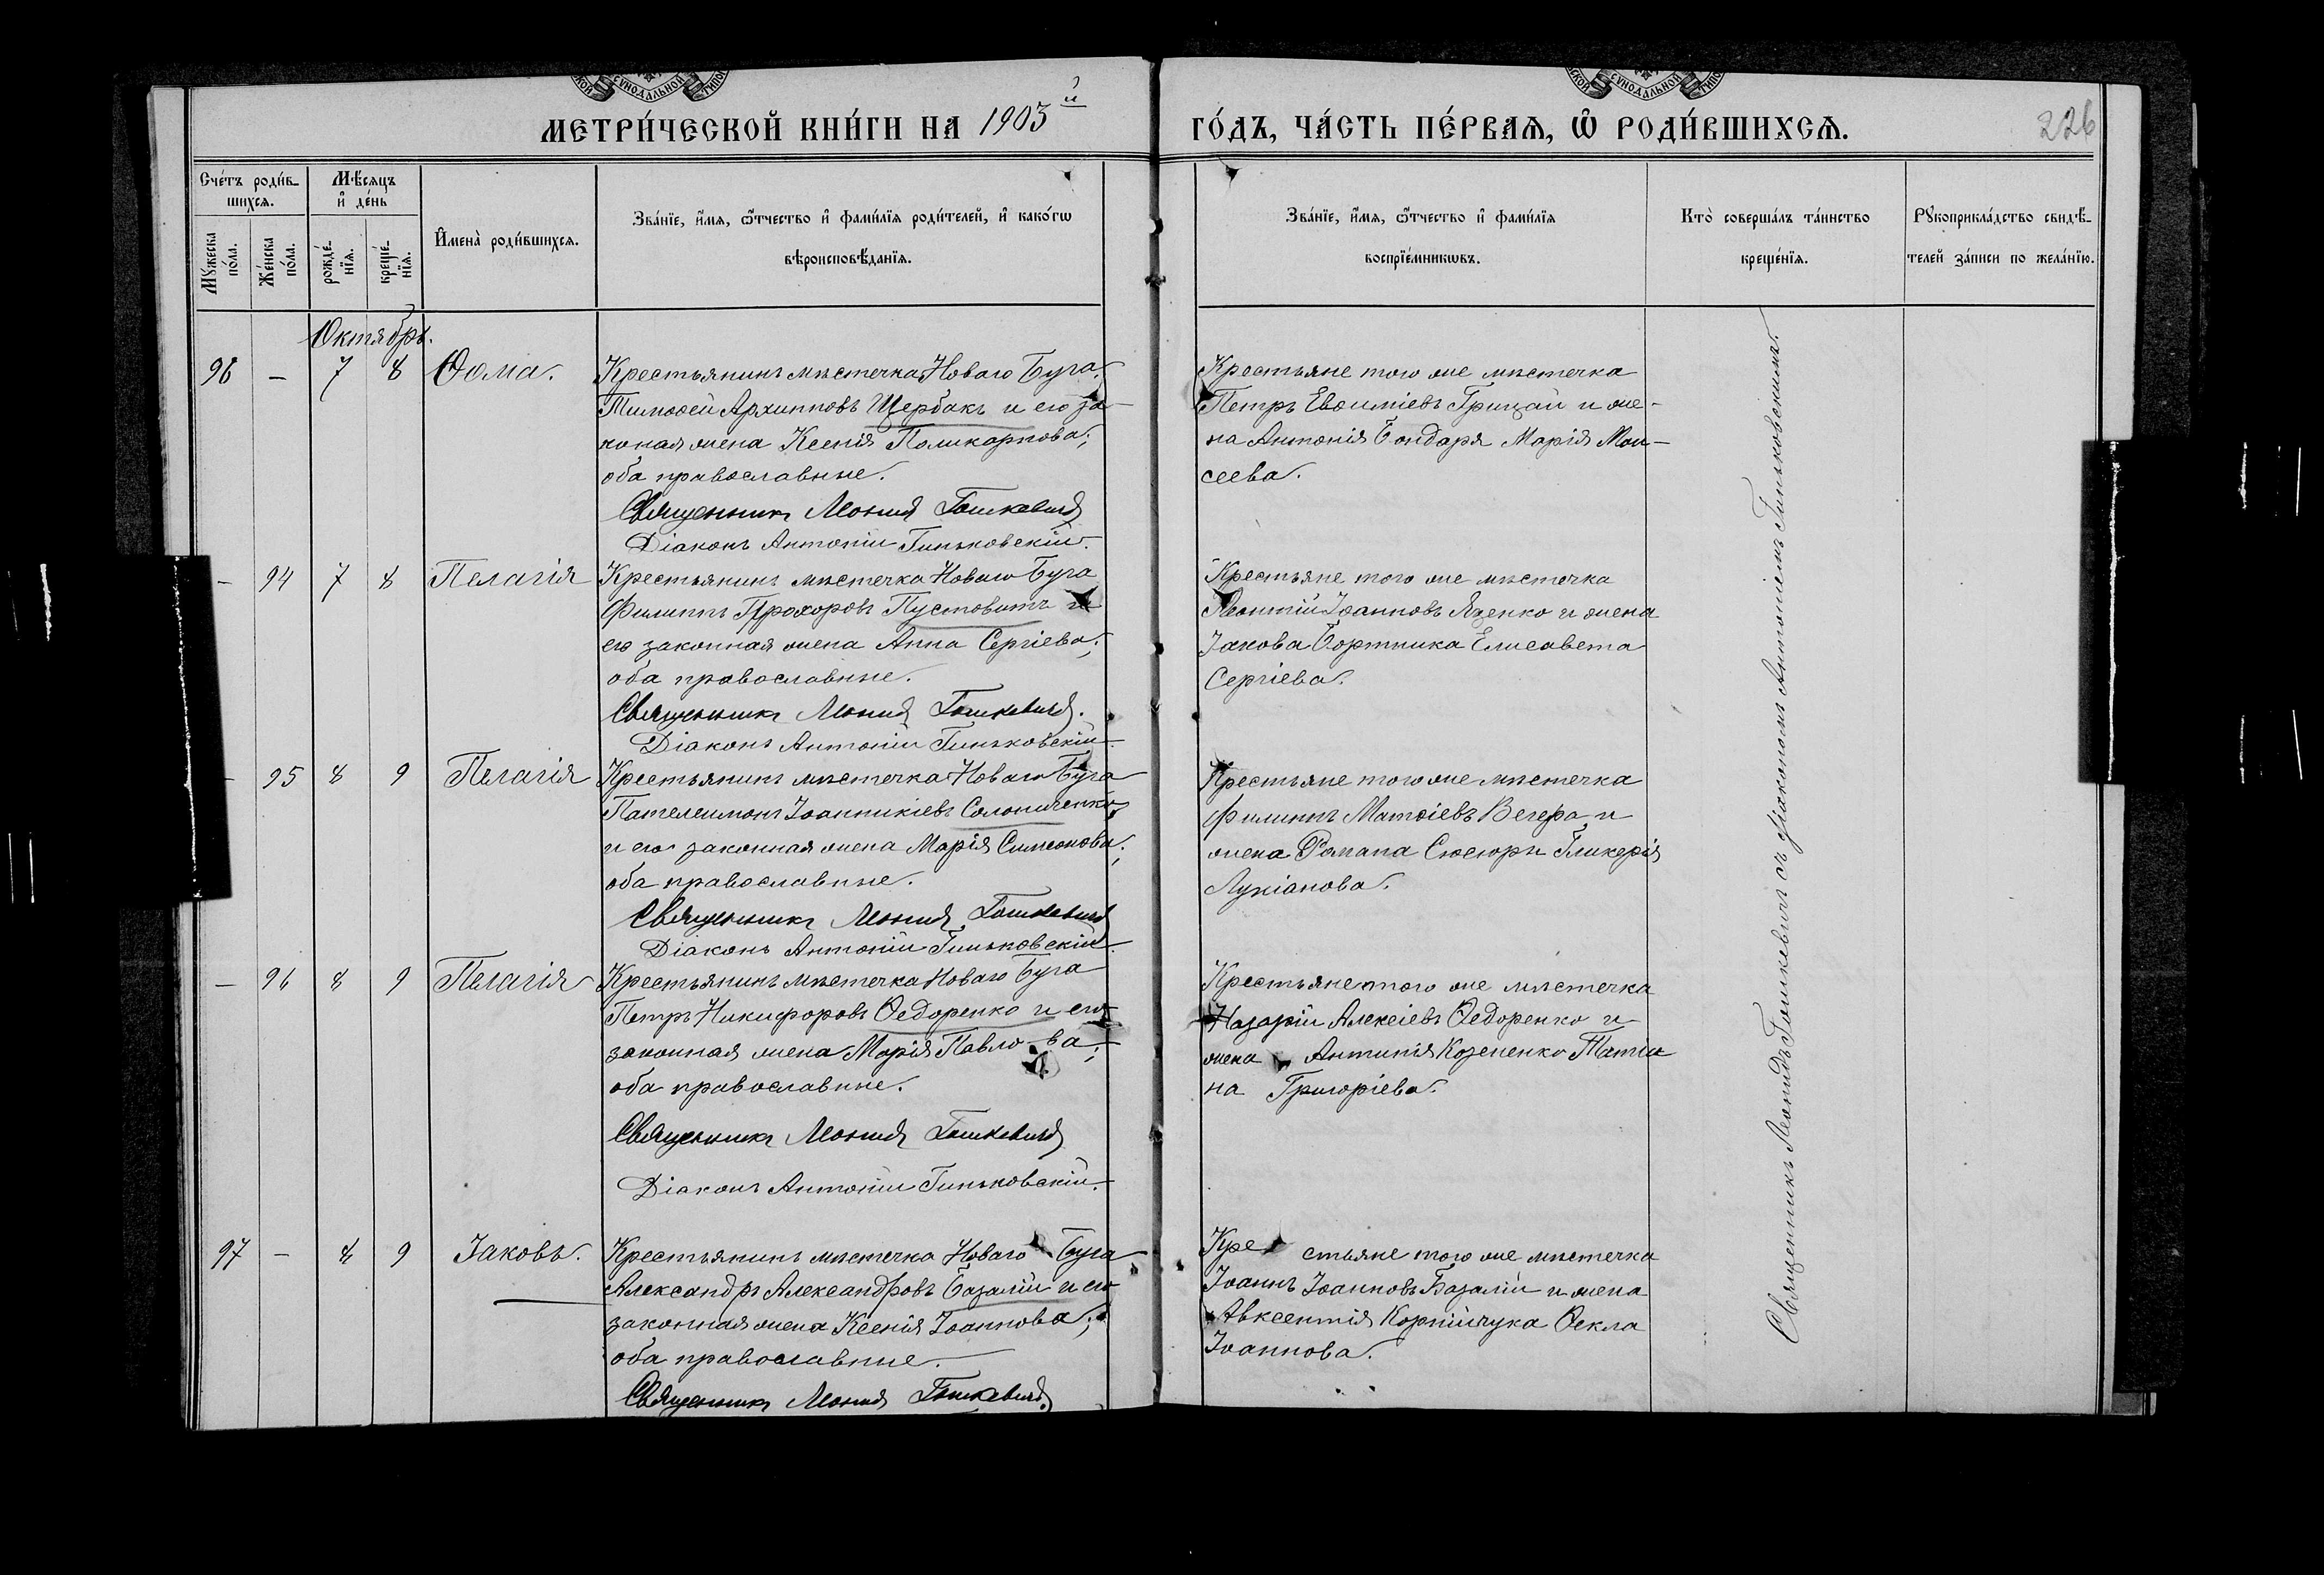 СѴНОДАЛЬНОЙ
СѴНОДАЛЬНОЙ
МЕТРИ́ЧЕСКОЙ КНИ́ГИ НА 1903й
ГО́ДЪ, ЧА́СТЬ ПЕ́РВАЯ, Ѡ҆ РОДИ́ВШИХСЯ.
226
Сче́тъ роди́в-
шихсѧ.
Мѣ́сѧцъ
и҆ де́нь
Мꙋ́жеска
по́ла.
Же́нска
по́ла.
рожде́-
нїѧ.
креще́-
нїѧ.
И҆мена̀ роди́вшихсѧ.
Зва́нїе, и҆́мѧ, ѻ҆́тчество и҆ фами́лїѧ роди́телей, и҆ како́гѡ
вѣроисповѣ́данїѧ.
Зва́нїе, и҆́мѧ, ѻ҆́тчество и҆ фами́лїѧ
воспрїе́мникѡвъ.
Кто̀ соверша́лъ та́инство
креще́нїѧ.
Рꙋкоприкла́дство свидѣ́-
телей за́писи по жела́нїю.
Октябрь.
96 – 7 8 Ѳома.
Крестьянинъ мѣстечка Новаго Буга
Тимоѳей Архипповъ Щербакъ и его за-
коная жена Ксенія Поликарпова;
оба православные.
Священникъ Леонид Гошкевичъ
Діаконъ Антоній Гиньковскій.
Крестьяне того же мѣстечка
Петръ Евѳиміевъ Грицай и же-
на Антонія Бондаря Марія Мои-
сеева.
– 94 7 8 Пелагія
Крестьянинъ мѣстечка Новаго Буга
Филиппъ Прохоровъ Пустовитъ и
его законная жена Анна Сергіева;
оба православные.
Священникъ Леонид Гошкевичъ.
Діаконъ Антоній Гиньковскій
Крестьяне того же мѣстечка
Леонтій Іоанновъ Яценко и жена
Іакова Бортника Елисавета
Сергіева.
– 95 8 9 Пелагія
Крестьянинъ мѣстечка Новаго Буга
Пателеимонъ Іоанникіевъ Солониченко
и его законная жена Марія Симеонова;
оба православные.
Священникъ Леонид Гошкевичъ
Діаконъ Антоній Гиньковскій
Крестьяне того же мѣстечка
Филиппъ Матѳіевъ Вегера и
жена Романа Сюсюры Гликерія
Лукіанова.
– 96 8 9 Пелагія
Крестьянинъ мѣстечка Новаго Буга
Петръ Никифоровъ Ѳедоренко и его
законная жена Марія Павлова;
оба православные.
Священникъ Леонид Гошкевичъ
Діаконъ Антоній Гиньковскій.
Крестьяне того же мѣстечка
Назарій Алексіевъ Ѳедоренко и
жена Антипія Козененко Татіа
на Григоріева.
97 – 8 9 Іаковъ.
Крестьянинъ мѣстечка Новаго Буга
Александръ Александровъ Базалій и его
законная жена Ксенія Іоаннова;
оба православные.
Священникъ Леонид Гошкевичъ
Крестьяне того же мѣстечка
Іоаннъ Іоанновъ Базалій и жена
Авксентія Корнійчука Ѳекла
Іоаннова.
Священникъ Леонидъ Гошкевичъ съ діакономъ Антоніемъ Гиньковскимъ.